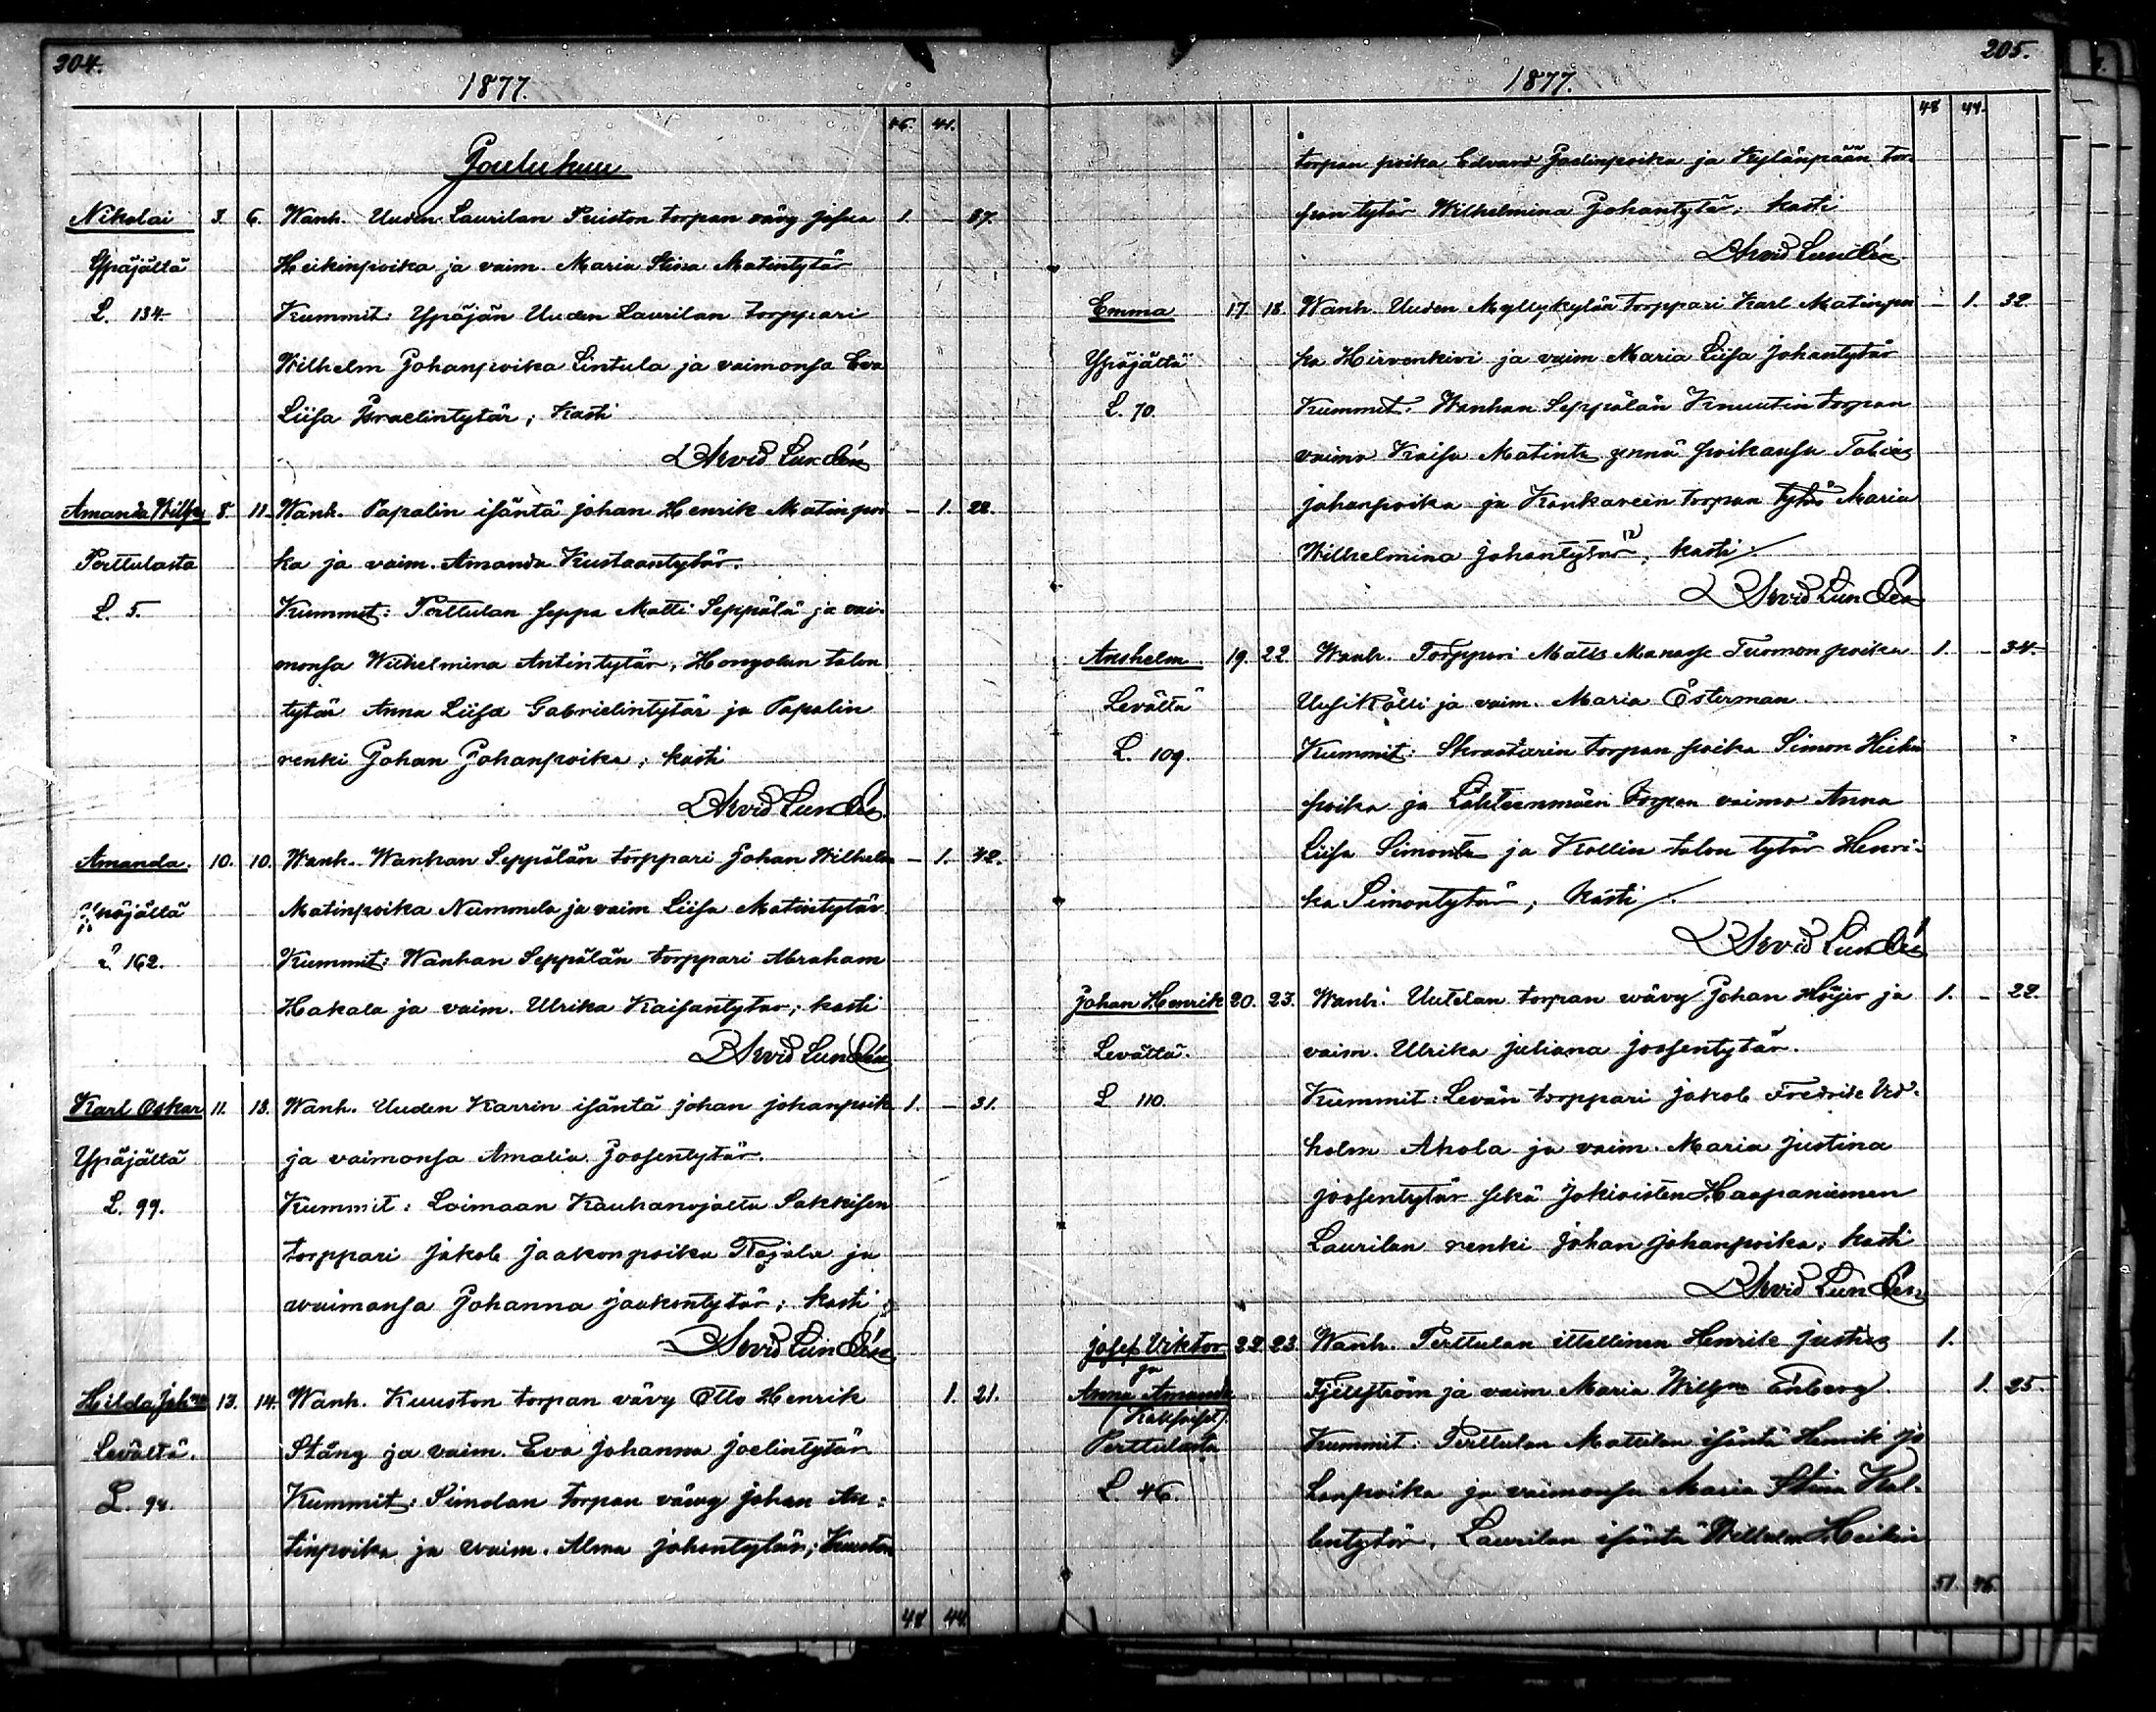 204.
1877.
46. 41.
Joulukuu
Nikolai 3. 6. Wanh. Uuden Laurilan Puiston torpan vävy Josua 1. - 37.
Ypäjältä Heikinpoika ja vaim. Maria Stina Matintytär
L. 134. Kummit: Ypäjän Uuden Laurilan torppari
Wilhelm Johanpoika Lintula ja vaimonsa Eva
Liisa Israelintytär; Kasti
Arvid Lundén
Amanda 8. 11. Wanh. Papalin isäntä Johan Henrik Matinpoi - 1. 22.
Perttulasta ka ja vaim. Amanda Kustaantytär.
L. 5. Kummit: Perttulan seppa Matti Seppälä ja vai-
monsa Wilhelmina Antintytär, Hongolan talon
tytär Anna Liisa Gabrielintytär ja Papalin
renki Johan Johanpoika; kasti
Arvid Lundén
Amanda. 10. 10. Wanh. Wanhan Seppälän torppari Johan Wilhelm - 1. 42.
Ypäjältä Matinpoika Nummela ja vaim Liisa Matintytär.
L 162. Kummit: Wanhan Seppälän torppari Abraham
Hakala ja vaim. Ulrika Kaisantytär; kasti
Arvid Lundén
Karl Oskar 11. 13. Wanh. Uuden Karrin isäntä Johan Johanpoik 1. - 31.
Ypäjältä ja vaimonsa Amalia Joosentytär.
L. 99. Kummit: Loimaan Kauhanojalta Sakkisen
torppari Jakob Jaakonpoika Rajala ja
waimonsa Johanna Jaakontytär; kasti
Arvid Lundén
Hilda Joh:na 13. 14. Wanh. Kuuston torpan vävy Otto Henrik 1. 21.
Levältä. Stång ja vaim. Eva Johanna Joelintytär
L. 94. Kummit: Simolan torpan vävy Johan An-
tinpoika ja vaim. Alma Johantytär; Kuuston
48 44

205.
1877.
48 44.
torpan poika Edvard Joelinpoika ja Kylänpään tor-
pan tytär Wilhelmina Johantytär; kasti
Arvid Lundén
Emma 17. 18. Wanh. Uuden Myllykylän torppari Karl Matinpoi - 1. 32.
Ypäjältä ka Hirvenkivi ja vaim Maria Liisa Johantytär
L. 70. Kummit: Wanhan Seppälän Knuutin torpan
vaimo Kaisa Matint. ynnä poikansa Tobias
Johanpoika ja Kankareen torpan tytär Maria
Wilhelmina Johantytär; kasti
Arvid Lundén
Anshelm 19. 22. Wanh. Torppari Matts Manasse Tuomonpoika 1. - 34.
Levältä Uusikälli ja vaim. Maria Österman.
L. 109. Kummit: Skraatarin torpan poika Simon Heikin
poika ja Lähteenmäen torpan vaimo Anna
Liisa Simont. ja Kollin talon tytär Henri-
ka Simontytär; kasti
Arvid Lundén
Johan Henrik 20. 23. Wanh. Uutelan torpan wävy Johan Höijer ja 1. - 22.
Levältä. vaim. Ulrika Juliana Joosentytär.
L 110. Kummit: Levän torppari Jakob Fredrik Ved-
holm Ahola ja vaim. Maria Justina
Joosentytär sekä Jokioisten Haapaniemen
Laurilan renki Johan Johanpoika; kasti
Arvid Lundén
Josef Viktor 22. 23. Wanh. Perttulan itsellinen Henrik Justus 1.
ja
Anna Amanda Fjellström ja vaim Maria Enberg. 1. 25.
(Kaksoiset).
Perttulasta Kummit: Perttulan Mattilan isäntä Henrik Jo
L. 46. hanpoika ja vaimonsa Maria Stina Kal-
lentytär, Laurilan isäntä Wilhelm Heikin
51. 46.